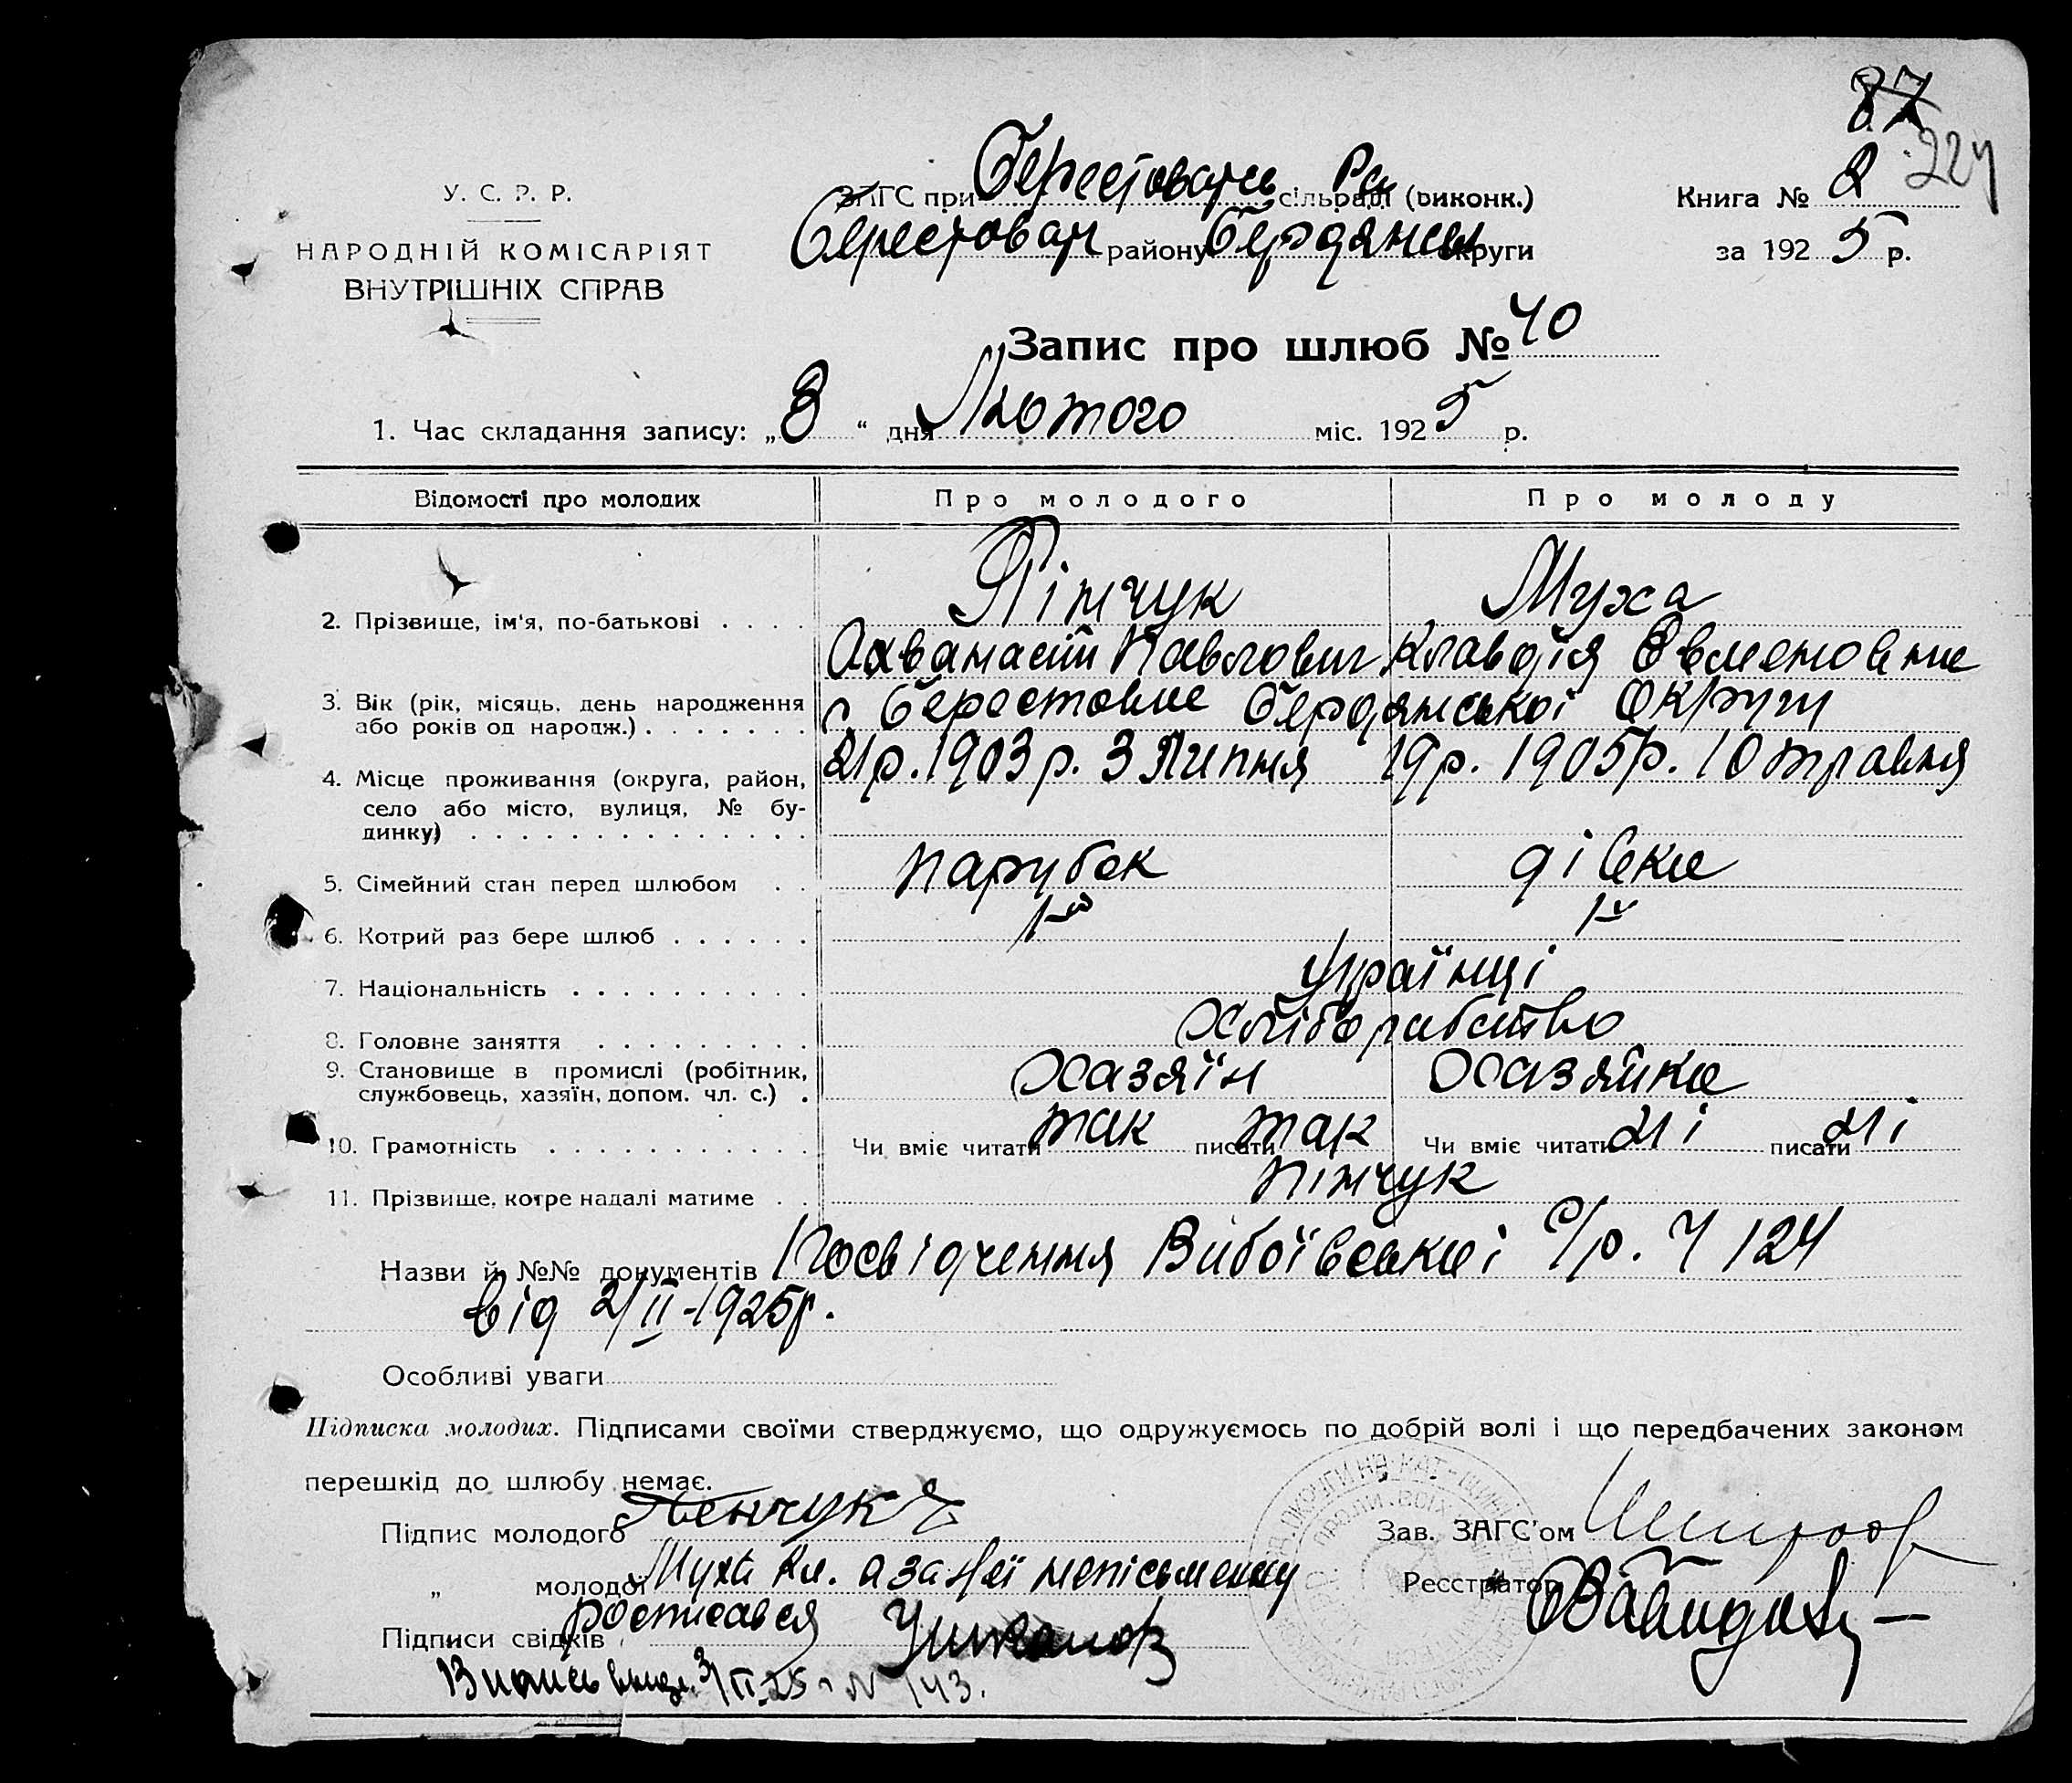 87
224
У. С. Р. Р.
НАРОДНІЙ КОМІСАРІЯТ
ВНУТРІШНІХ СПРАВ
ЗАГС при Берестоватсь сільраді (виконк.) Ра
Берестоват району Бердянськ округи
Книга № 2
за 1925 р.
Запис про шлюб № 40
1. Час складання запису: „3“ дня Лютого міс. 1925 р.
Відомості про молодих Про молодого Про молоду
2. Прізвище, ім'я, по-батькові . . . . Пінчук Муха
Ахванасій Павлович Клавдія Овлемовна
3. Вік (рік, місяць, день народження або років од народж.) . . . . . . . с Берестове Бердянської Округи
21 р. 1903 р. 3 Липня 19 р. 1905 р. 10 травня
4. Місце проживання (округа, район, село або місто, вулиця, № будинку) . . . . . . . . . . . . . .
5. Сімейний стан перед шлюбом . . парубок дівка
6. Котрий раз бере шлюб . . . . . .
7. Національність . . . . . . . . . . Українці
8. Головне заняття . . . . . . . . . Хліборобство
9. Становище в промислі (робітник, службовець, хазяїн, допом. чл. с.) . Хазяїн Хазяйка
10. Грамотність . . . . . . . . . . . Чи вміє читати так писати так Чи вміє читати ні писати ні
11. Прізвище, котре надалі матиме . . Пінчук
Назви й №№ документів Посвідчення Вибоївської с/р. Ч 124
від 2/II-1925р.
Особливі уваги
Підписка молодих. Підписами своїми стверджуємо, що одружуємось по добрій волі і що передбачених законом
перешкід до шлюбу немає.
Підпис молодого Пенчук
Зав. ЗАГС'ом
„ молодої Муха Кл. а за неї неписьменну
Реєстратор
росписався
Підписи свідків
Випись 3/II 25 N 143.